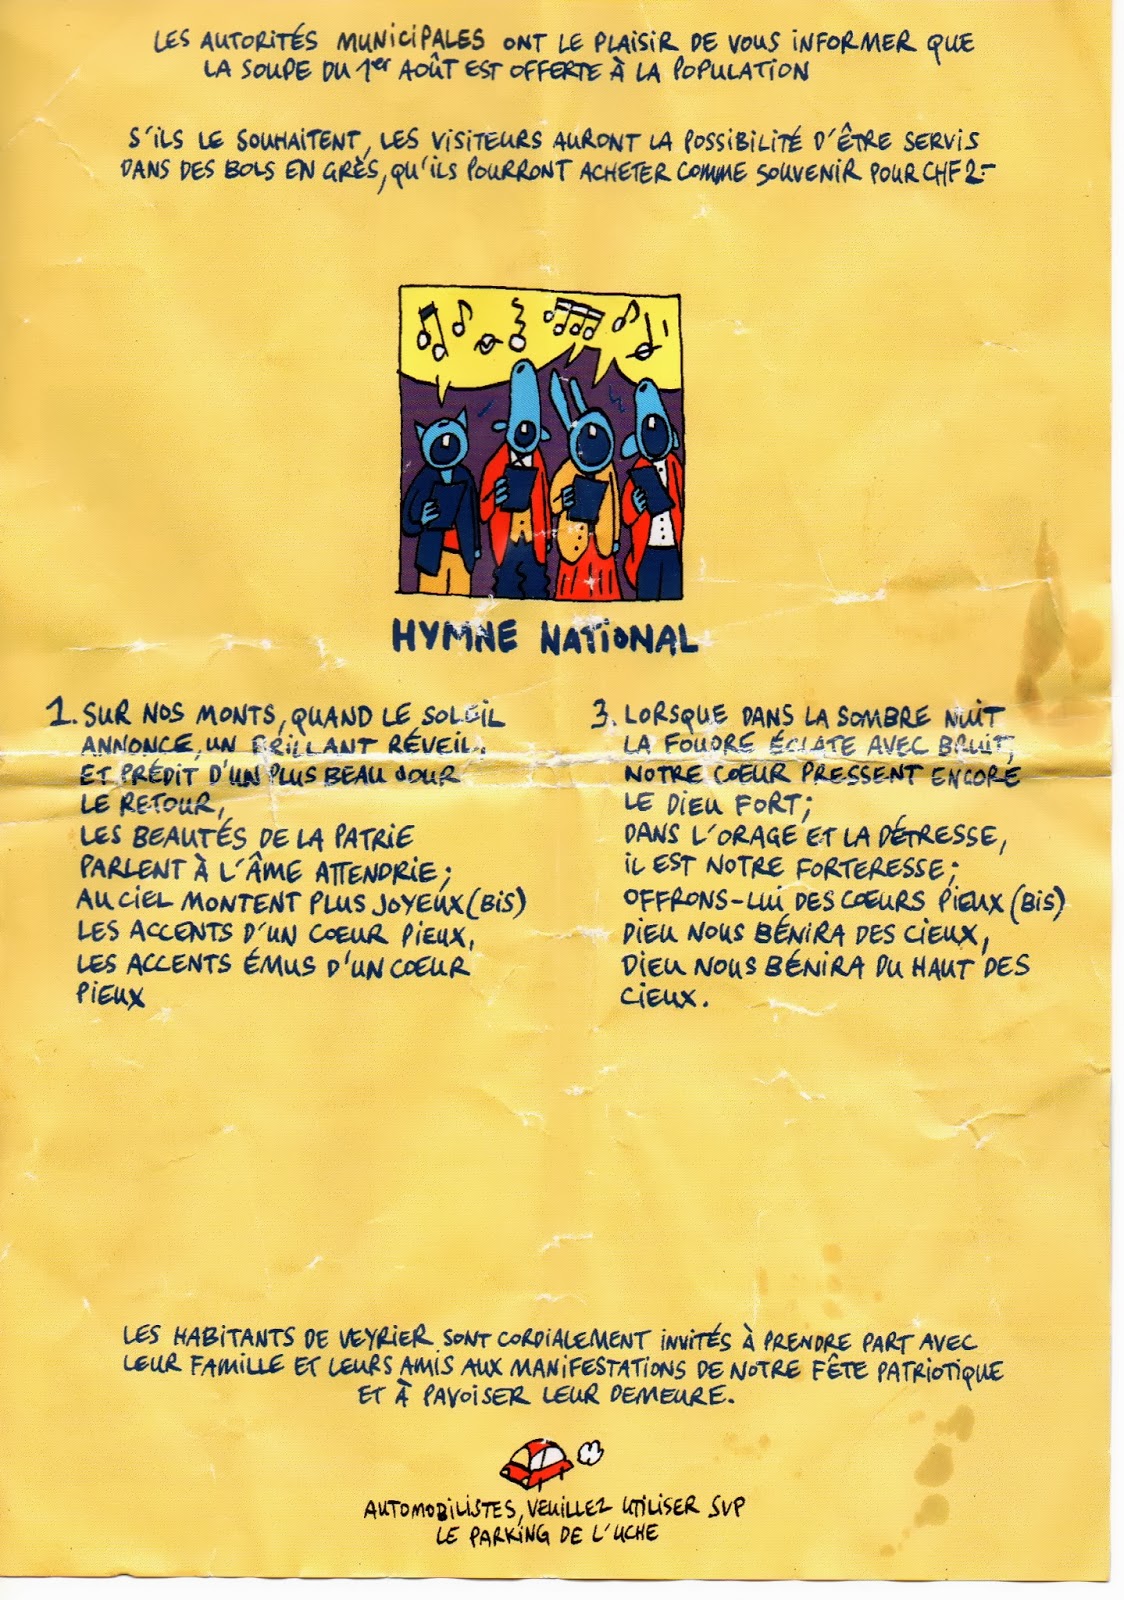 LES AUTORITÉS MUNICIPALES ONT LE PLAISIR DE VOUS INFORMER QUE
LA SOUPE DU 1er AOÛT EST OFFERTE À LA POPULATION
S'ILS LE SOUHAITENT, LES VISITEURS AURONT LA POSSIBILITÉ D'ÊTRE SERVIS
DANS DES BOLS EN GRÈS, QU'ILS POURRONT ACHETER COMME SOUVENIR POUR CHF 2.-
HYMNE NATIONAL
1. SUR NOS MONTS, QUAND LE SOLEIL
ANNONCE UN BRILLANT RÉVEIL,
ET PRÉDIT D'UN PLUS BEAU JOUR
LE RETOUR,
LES BEAUTÉS DE LA PATRIE
PARLENT À L'ÂME ATTENDRIE;
AU CIEL MONTENT PLUS JOYEUX (BIS)
LES ACCENTS D'UN COEUR PIEUX,
LES ACCENTS ÉMUS D'UN COEUR
PIEUX
3. LORSQUE DANS LA SOMBRE NUIT
LA FOUDRE ÉCLATE AVEC BRUIT,
NOTRE COEUR PRESSENT ENCORE
LE DIEU FORT;
DANS L'ORAGE ET LA DÉTRESSE,
IL EST NOTRE FORTERESSE;
OFFRONS-LUI DES COEURS PIEUX (BIS)
DIEU NOUS BÉNIRA DES CIEUX,
DIEU NOUS BÉNIRA DU HAUT DES
CIEUX.
LES HABITANTS DE VEYRIER SONT CORDIALEMENT INVITÉS À PRENDRE PART AVEC
LEUR FAMILLE ET LEURS AMIS AUX MANIFESTATIONS DE NOTRE FÊTE PATRIOTIQUE
ET À PAVOISER LEUR DEMEURE.
AUTOMOBILISTES, VEUILLEZ UTILISER SVP
LE PARKING DE L'UCHE